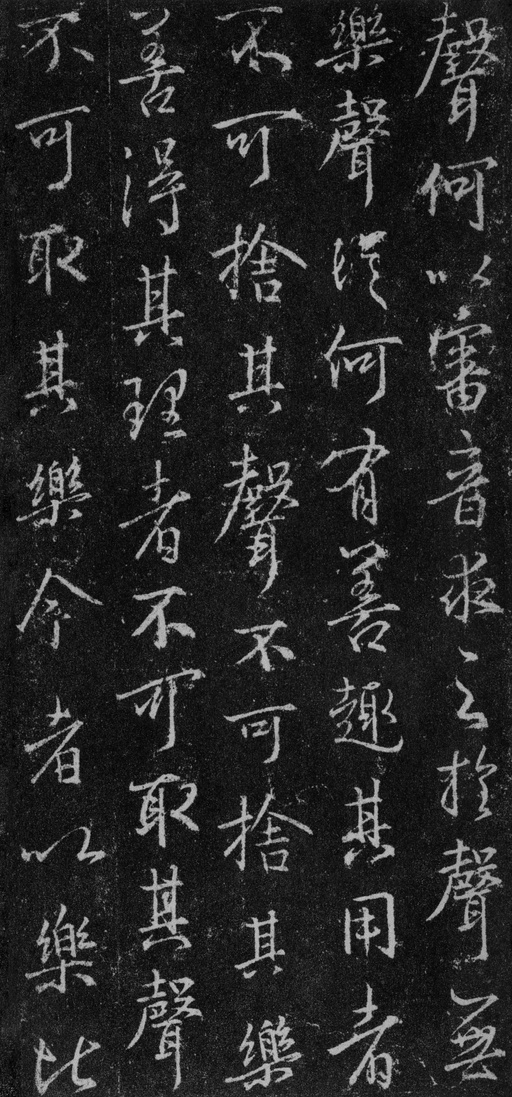 聲何以審音求之於聲無
樂聲從何有善趣其用者
不可捨其聲不可捨其樂
善得其理者不可取其聲
不可取其樂今者以樂比